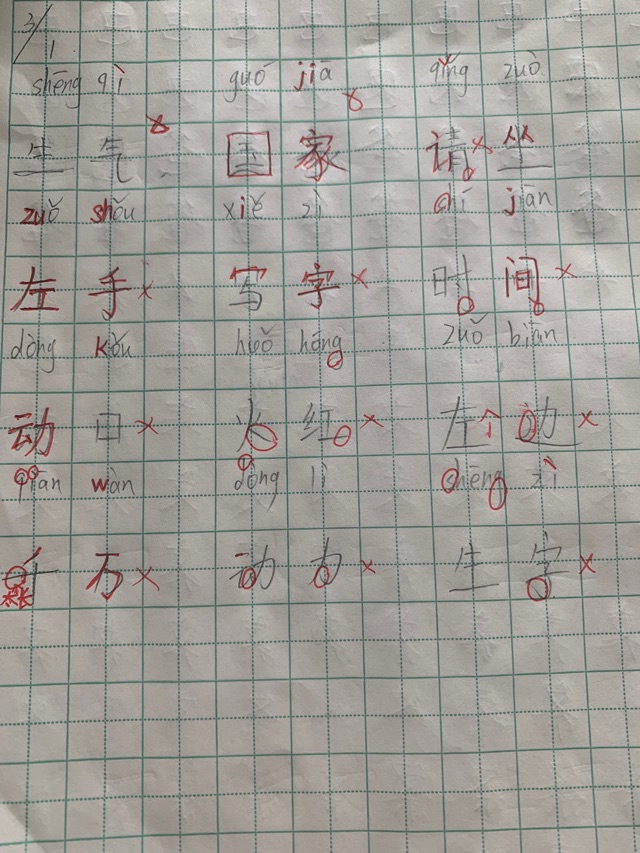 3/1
shēng qì guó jiā qǐng zuò
生 气 国 家 请 坐
zuǒ shǒu xiě zì shí jiān
左 手 写 字 时 间
dòng kǒu huǒ hóng zuǒ biān
动 口 火 红 左 边
qiān wàn dòng lì shēng zì
千 万 动 力 生 字
太长